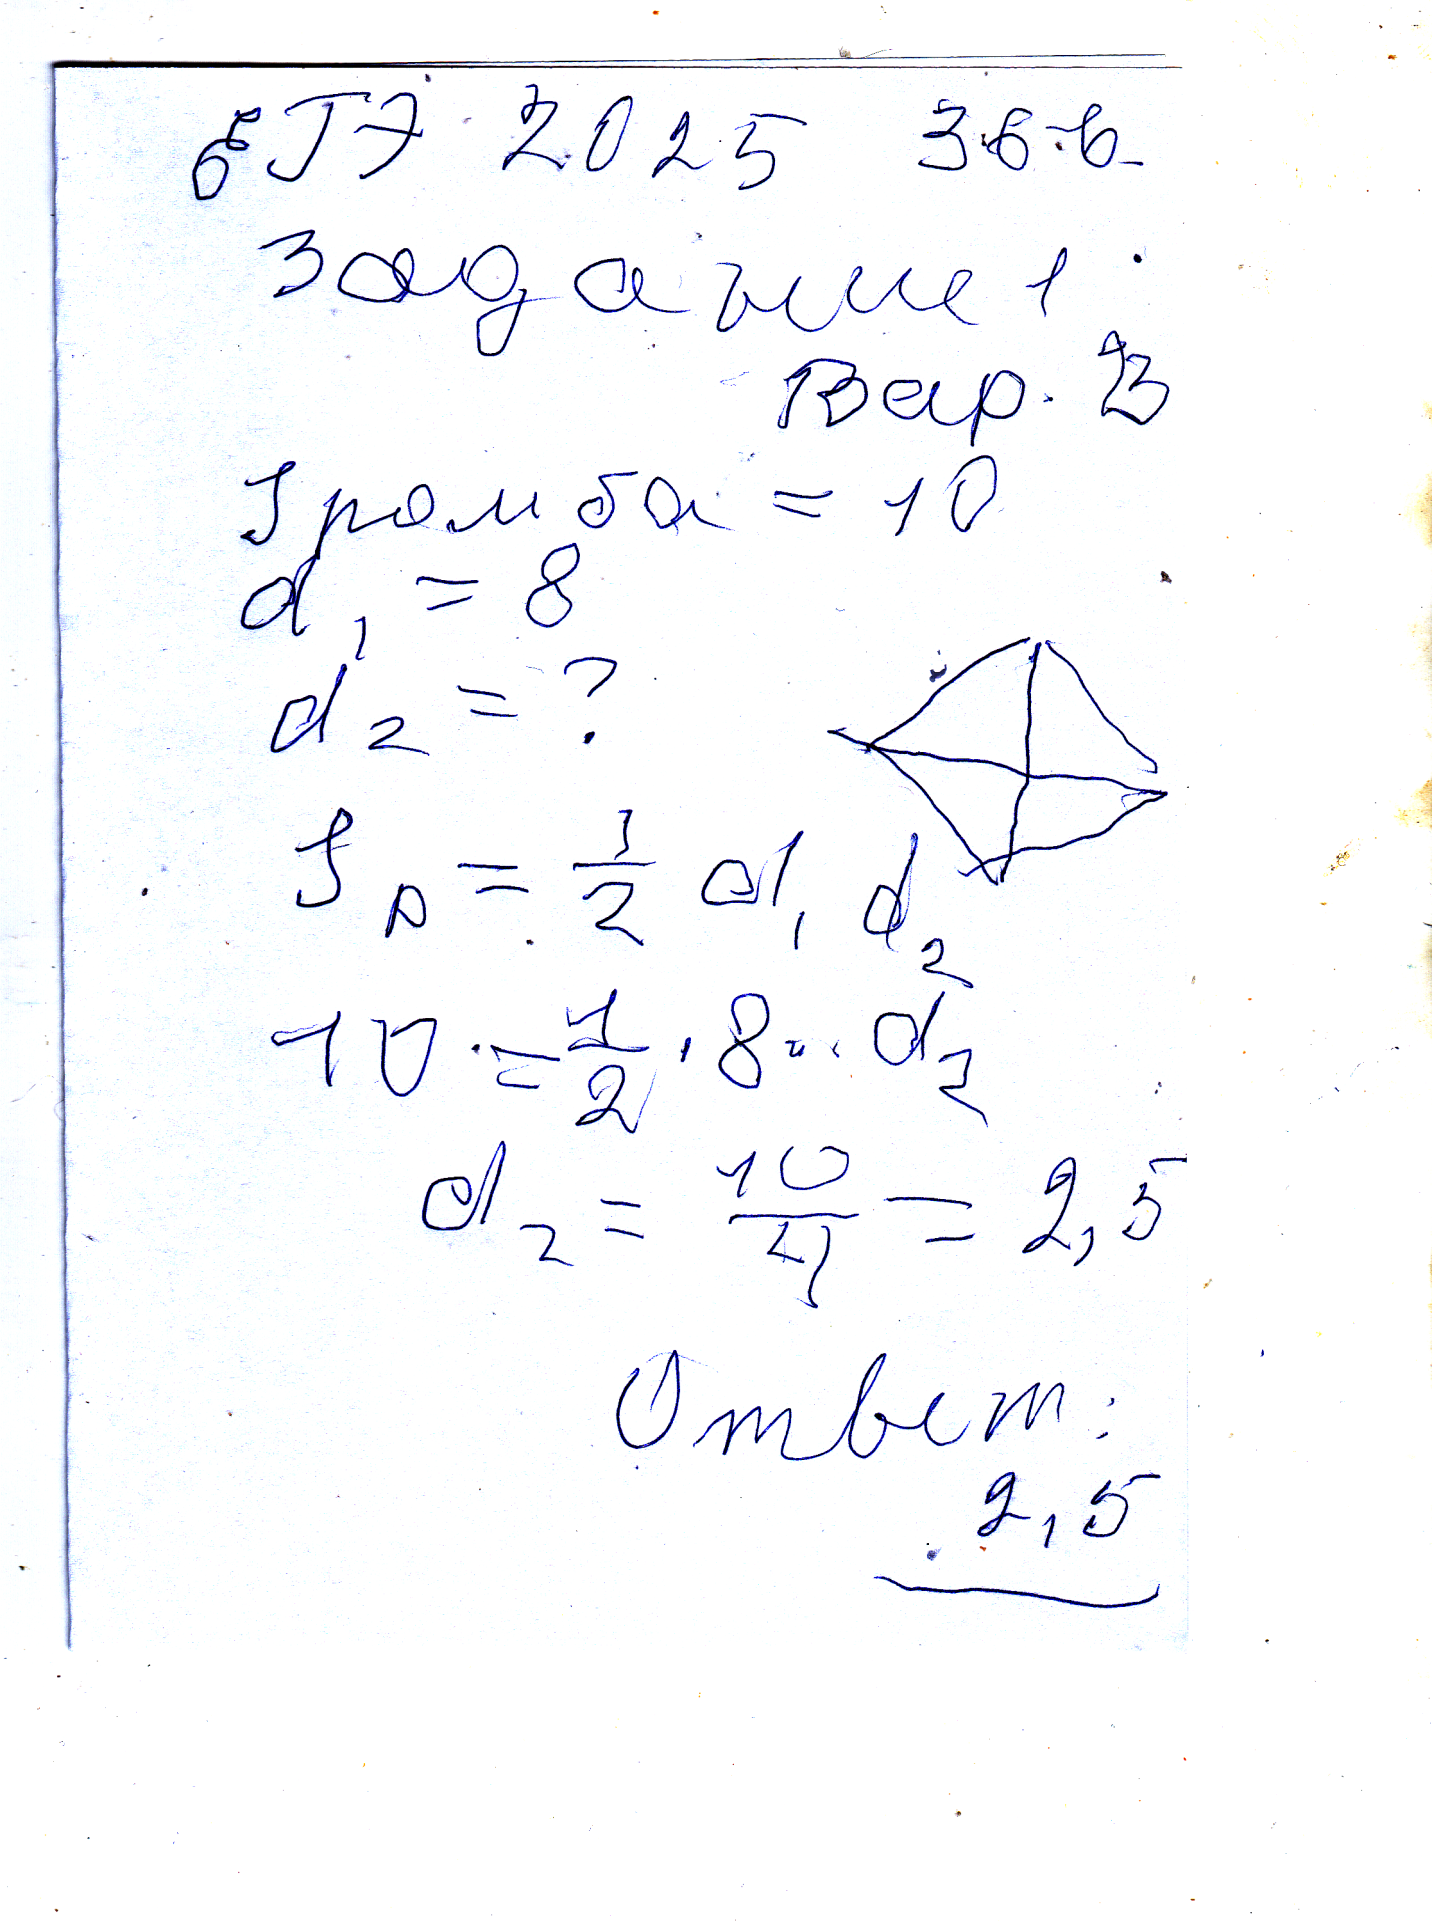 ЕГЭ 2025 36 в
Задание 1
Вар. 13
S ромба = 10
d₁ = 8
d₂ = ?
S р = 1/2 d₁ d₂
10 = 1/2 · 8 · d₂
d₂ = 10/4 = 2,5
Ответ:
2,5